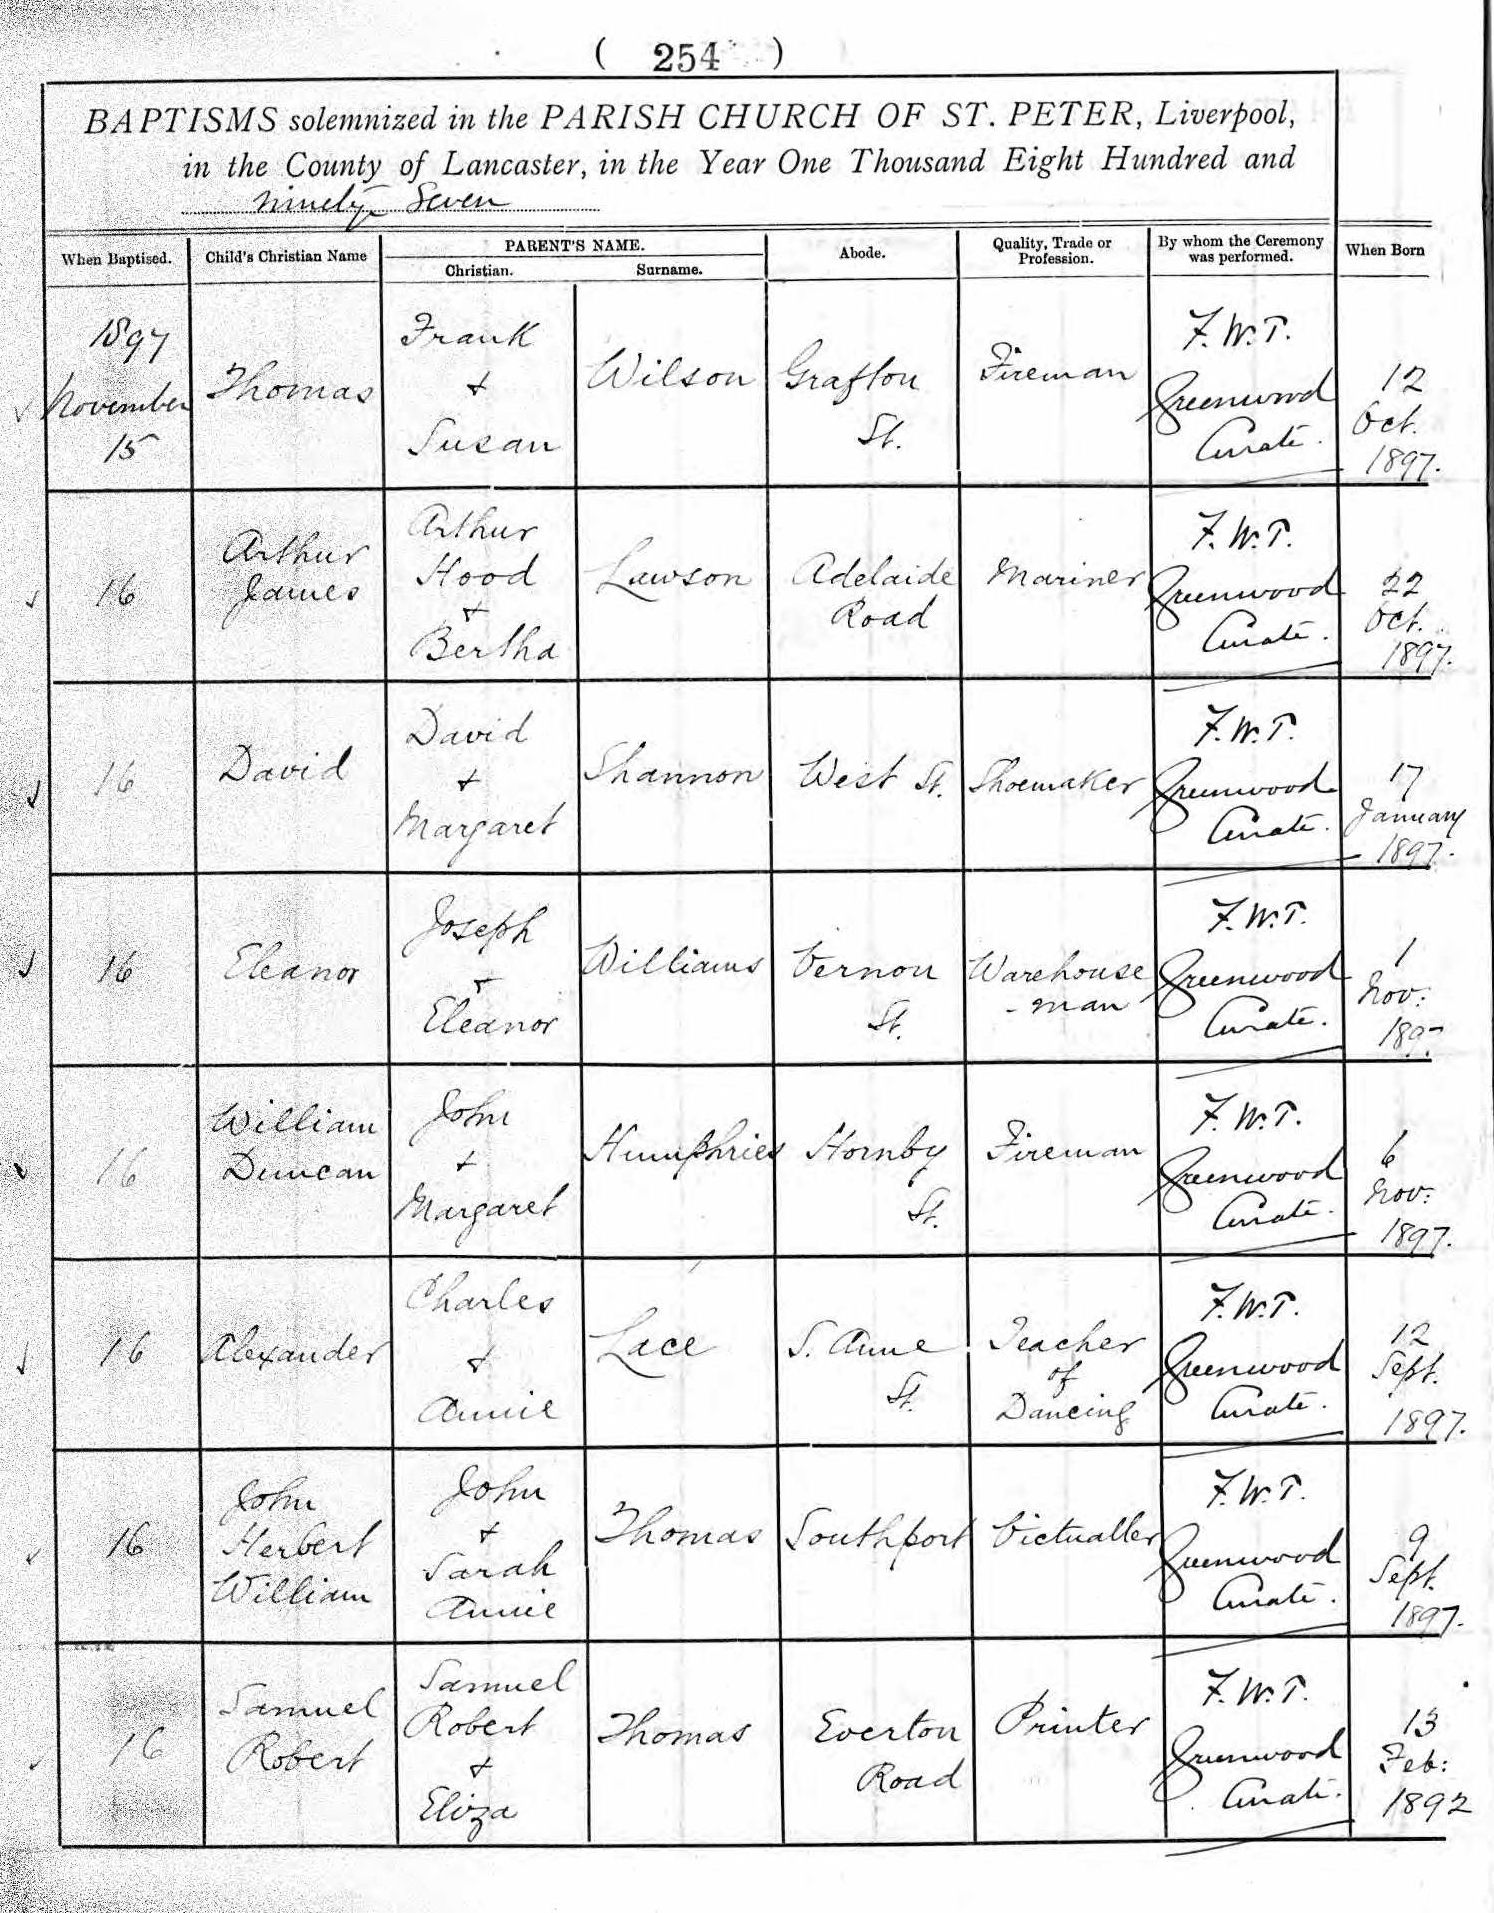 ( 254 )
BAPTISMS solemnized in the PARISH CHURCH OF ST. PETER, Liverpool,
in the County of Lancaster, in the Year One Thousand Eight Hundred and
ninety Seven
When Baptised.
Child's Christian Name
PARENT'S NAME.
Christian.
Surname.
Abode.
Quality, Trade or
Profession.
By whom the Ceremony
was performed.
When Born
1897
November
15
Thomas
Frank
+
Susan
Wilson
Grafton
St.
Fireman
F. W. T.
Greenwood
Curate.
12
Oct.
1897.
16
Arthur
James
Arthur
Hood
+
Bertha
Lawson
Adelaide
Road
Mariner
F. W. T.
Greenwood
Curate.
22
Oct.
1897.
16
David
David
+
Margaret
Shannon
West St.
Shoemaker
F. W. T.
Greenwood
Curate.
17
January
1897.
16
Eleanor
Joseph
+
Eleanor
Williams
Vernon
St.
Warehouse
-man
F. W. T.
Greenwood
Curate.
1
Nov:
1897
16
William
Duncan
John
+
Margaret
Humphries
Hornby
St.
Fireman
F. W. T.
Greenwood
Curate.
6
Nov:
1897.
16
Alexander
Charles
+
Annie
Lace
S. Anne
St.
Teacher
of
Dancing
F. W. T.
Greenwood
Curate.
12
Sept.
1897.
16
John
Herbert
William
John
+
Sarah
Annie
Thomas
Southport
Victualler
F. W. T.
Greenwood
Curate.
9
Sept.
1897.
16
Samuel
Robert
Samuel
Robert
+
Eliza
Thomas
Everton
Road
Printer
F. W. T.
Greenwood
Curate.
13
Feb:
1892